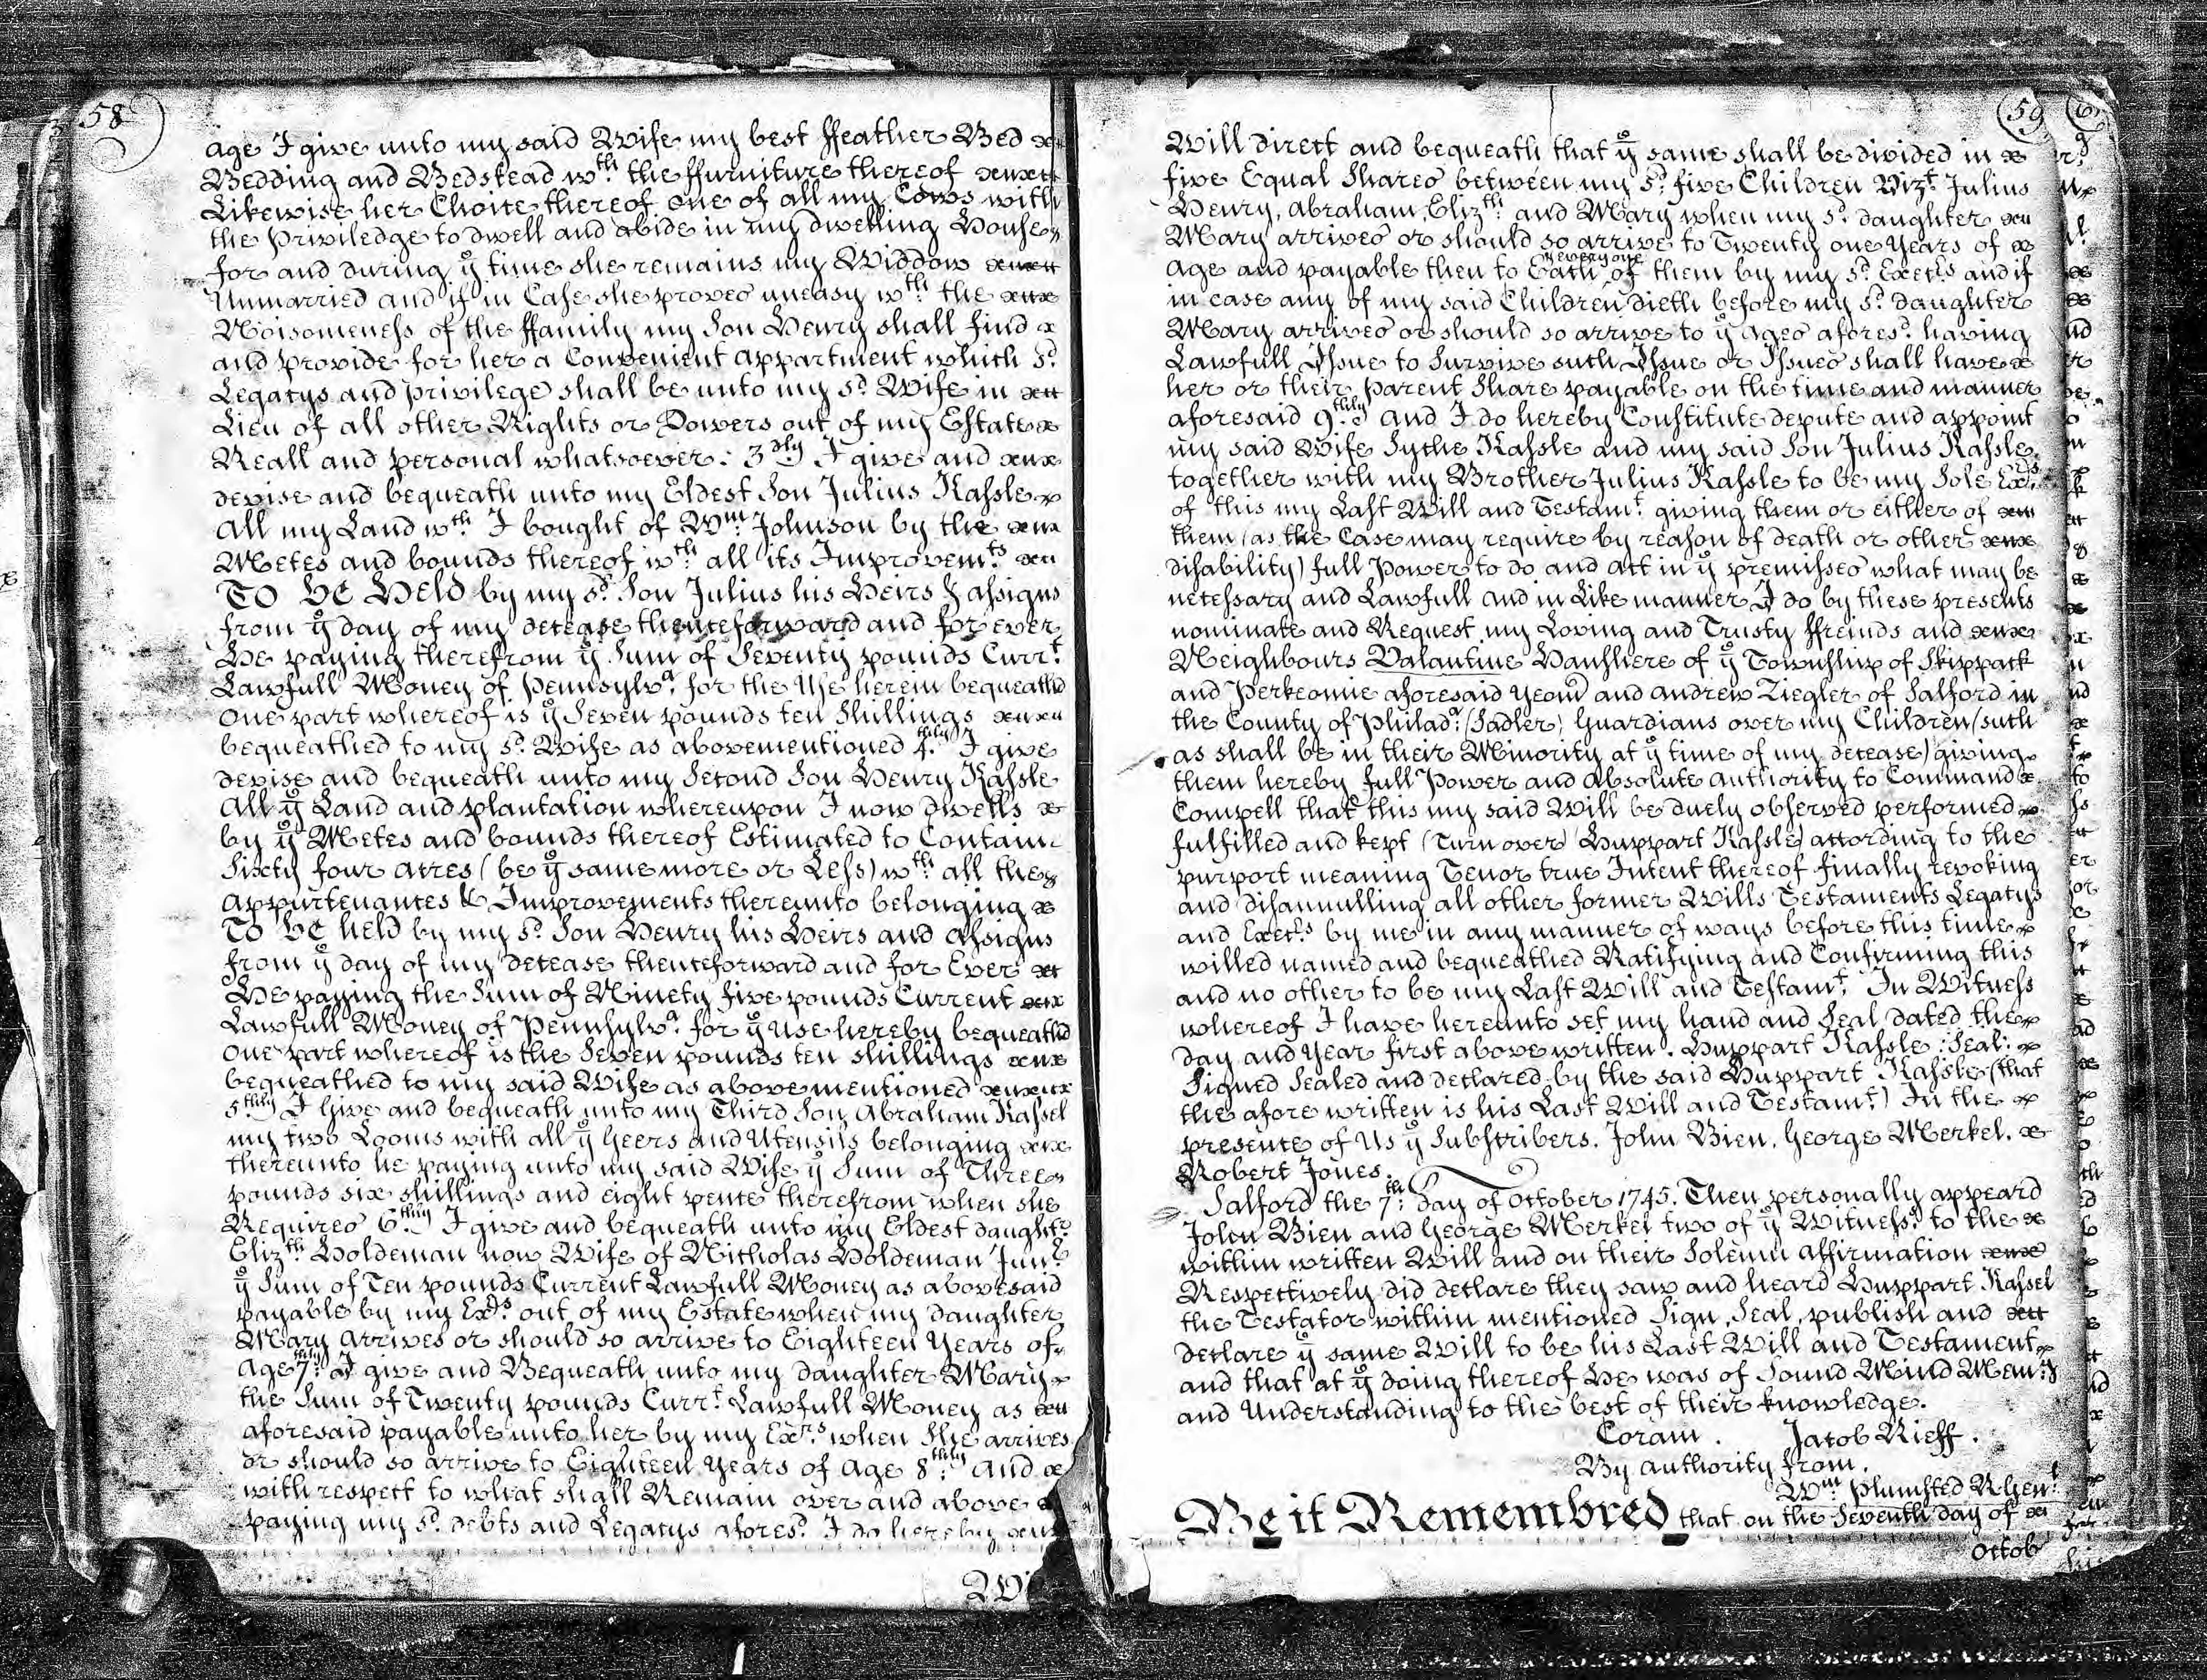 58
age I give unto my said Wife my best ffeather Bed
Bedding and Bedstead wth. the ffurniture thereof
Likewise her Choice thereof one of all my Cows with
the Priviledge to dwell and abide in my dwelling House
for and during ye time she remains my Widdow
Unmarried and if in Case she proves uneasy wth. the
Noisomeness of the ffamily my Son Henry shall find
and provide for her a Convenient appartment which sd.
Legatys and privilege shall be unto my sd. Wife in
Lieu of all other Rights or Dowers out of my Estate
Reall and personal whatsoever: 3dly I give and
devise and bequeath unto my Eldest Son Julius Kassle
all my Land wch. I bought of Wm. Johnson by the
Metes and bounds thereof wth. all its Improvemts.
To be Held by my sd. Son Julius his Heirs & assigns
from ye day of my decease thenceforward and for ever
He paying therefrom ye Sum of Seventy pounds Currt.
Lawfull Money of Pennsylva. for the Use herein bequeathd
one part whereof is ye Seven pounds ten Shillings
bequeathed to my sd. Wife as abovementioned 4thly. I give
devise and bequeath unto my Second Son Henry Kassle
all ye Land and plantation whereupon I now dwells
by ye Metes and bounds thereof Estimated to Contain
Sixty four acres (be ye same more or Less) wth. all the
appurtenances & Improvements thereunto belonging
To be held by my sd. Son Henry his Heirs and assigns
from ye day of my decease thenceforward and for Ever
He paying the Sum of Ninety five pounds Current
Lawfull Money of Pennsylva. for ye use hereby bequeathd
one part whereof is the Seven pounds ten shillings
bequeathed to my said Wife as above mentioned
5thly I Give and bequeath unto my Third Son Abraham Kassel
my two Looms with all ye Geers and Utensils belonging
thereunto he paying unto my said Wife ye Sum of Three
pounds six shillings and eight pence therefrom when she
Requires 6thly I give and bequeath unto my Eldest daughtr.
Elizth. Holdeman now Wife of Nicholas Holdeman Junr.
ye Sum of Ten pounds Current Lawfull Money as abovesaid
payable by my Exrs. out of my Estate when my daughter
Mary arrives or should so arrive to Eighteen Years of
age 7thly. I give and Bequeath unto my daughter Mary
the Sum of Twenty pounds Currt. Lawfull Money as
aforesaid payable unto her by my Exrs. when she arrives
or should so arrive to Eighteen years of age 8thly. and
with respect to what shall Remain over and above
paying my sd. debts and Legatys afores.d I do hereby
59
Will direct and bequeath that ye same shall be divided in
five Equal Shares between my sd. five Children Vizt. Julius
Henry, Abraham, Elizth. and Mary when my sd. daughter
Mary arrives or should so arrive to Twenty one Years of
age and payable then to Each & every one of them by my sd. Exectrs and if
in case any of my said Children dieth before my sd. daughter
Mary arrives or should so arrive to ye ages aforesd. having
Lawfull Issue to Survive such Issue or Issues shall have
her or their parent Share payable on the time and manner
aforesaid 9thly. and I do hereby Constitute depute and appoint
my said Wife Sythe Kassle and my said Son Julius Kassle
together with my Brother Julius Kassle to be my Sole Exrs.
of this my Last Will and Testamt. giving them or either of
them (as the Case may require by reason of death or other
disability) full Power to do and act in ye premisses what may be
necessary and Lawfull and in Like manner I do by these presents
nominate and Request my Loving and Trusty ffreinds and
Neighbours Valantine Hansliere of ye Township of Skippack
and Perkeomie aforesaid yeom and Andrew Ziegler of Salford in
the County of Philada. (Sadler) Guardians over my Children (such
as shall be in their Minority at ye time of my decease) giving
them hereby full Power and absolute authority to Command
Compell that this my said Will be duely observed performed
fulfilled and kept (Turn over) Huppart Kassle according to the
purport meaning Tenor true Intent thereof finally revoking
and disannulling all other former Wills Testaments Legatys
and Exectrs by me in any manner of ways before this time
willed named and bequeathed Ratifying and Confirming this
and no other to be my Last Will and Testamt. In Witness
whereof I have hereunto set my hand and Seal dated the
day and year first above written. Huppart Kassle :Seal:
Signed Sealed and declared by the said Huppart Kassle (that
the afore written is his Last Will and Testamt.) In the
presence of Us ye Subscribers. John Bien. George Merkel.
Robert Jones.
Salford the 7th: day of October 1745. Then personally appeard
John Bien and George Merkel two of ye Witnesss. to the
within written Will and on their Solemn affirmation
Respectively did declare they saw and heard Huppart Kassel
the Testator within mentioned Sign, Seal, publish and
declare ye same Will to be his Last Will and Testament
and that at ye doing thereof He was of Sound Mind Mem:y
and Understanding to the best of their knowledge.
Coram. Jacob Rieff.
By authority from.
Wm. Plumsted RGenl.
Be it Remembred that on the Seventh day of
Octob